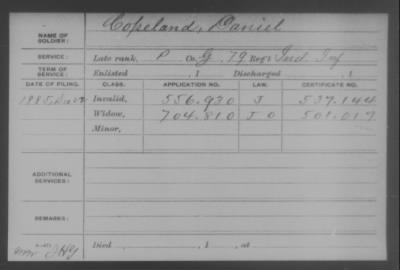 NAME OF SOLDIER: Copeland, Daniel
SERVICE: Late rank, P Co. G, 79 Reg't Ind. Inf
TERM OF SERVICE: Enlisted , 1 Discharged , 1
DATE OF FILING. CLASS. APPLICATION NO. LAW. CERTIFICATE NO.
1885 Invalid, 556.930 J 537.144
Widow, 704.810 J O 501.017
Minor,
ADDITIONAL SERVICES:
REMARKS:
Died , 1 , at